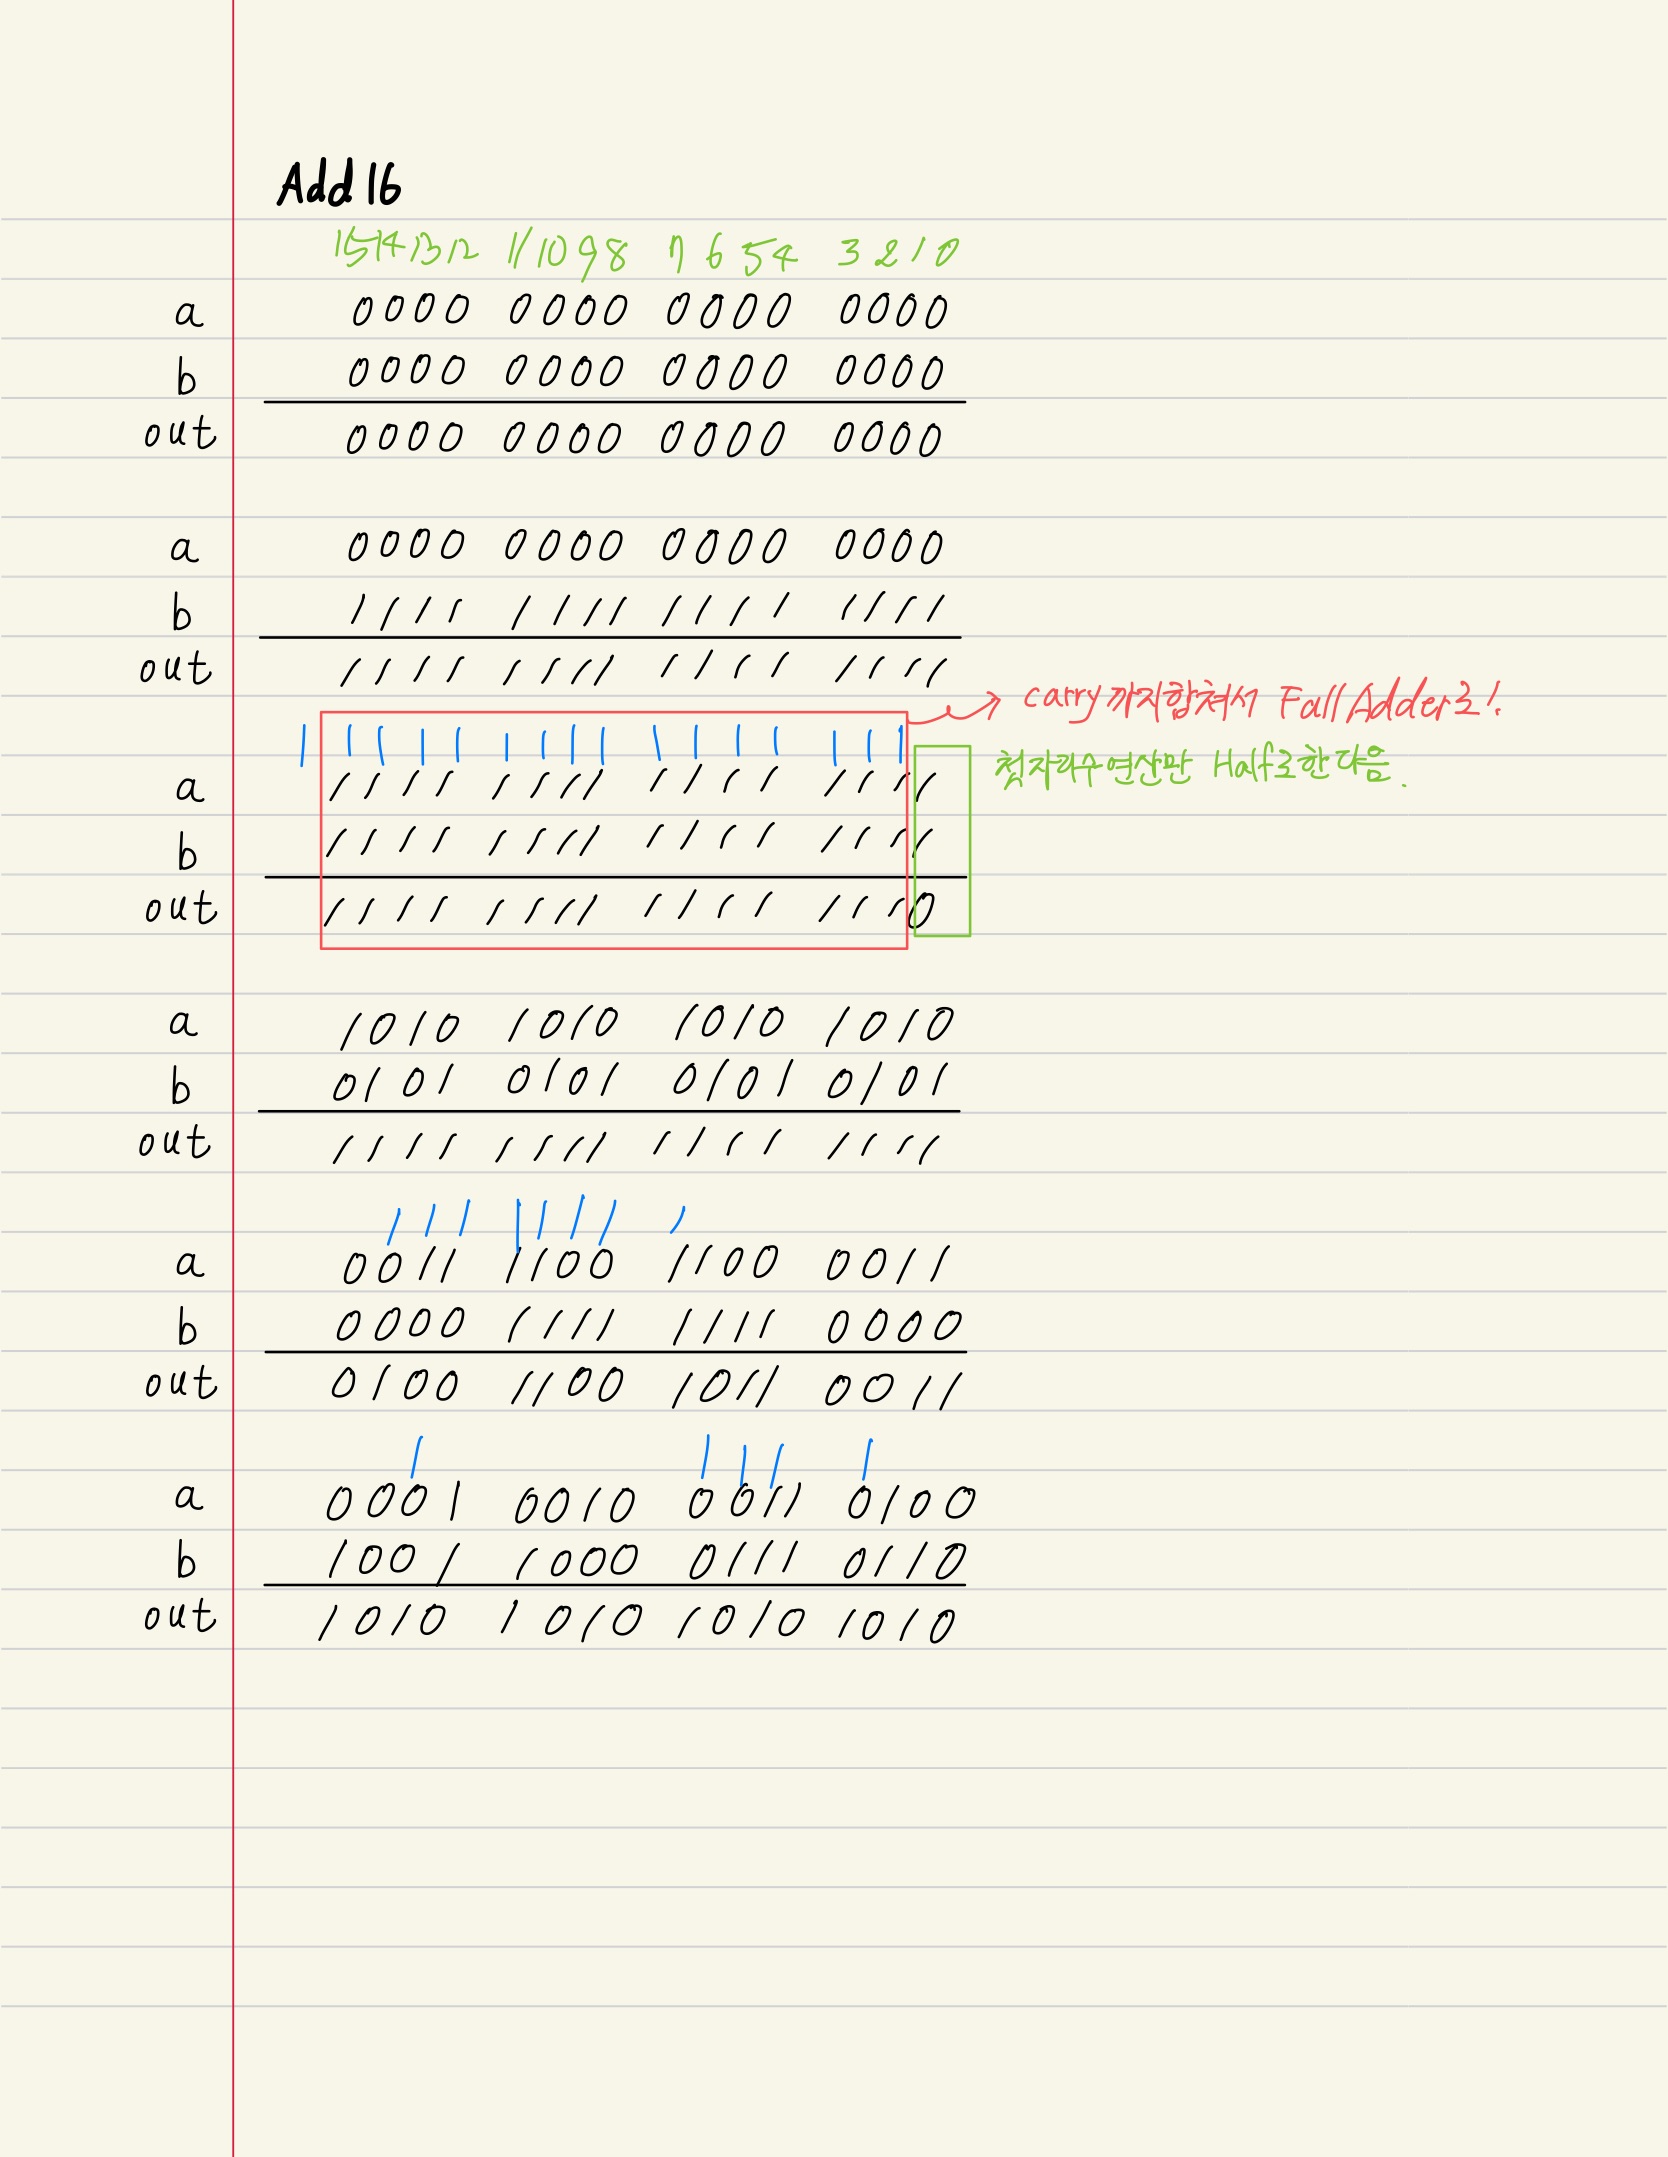 Add 16
15 14 13 12 11 10 9 8 7 6 5 4 3 2 1 0
a 0000 0000 0000 0000
b 0000 0000 0000 0000
out 0000 0000 0000 0000
a 0000 0000 0000 0000
b 1111 1111 1111 1111
out 1111 1111 1111 1111
carry까지합쳐서 Fall Adder로!
1 1111 1111 1111 111
첫자리수연산만 Half로한다음.
a 1111 1111 1111 1111
b 1111 1111 1111 1111
out 1111 1111 1111 1110
a 1010 1010 1010 1010
b 0101 0101 0101 0101
out 1111 1111 1111 1111
111 1111 1
a 0011 1100 1100 0011
b 0000 1111 1111 0000
out 0100 1100 1011 0011
1 111 1
a 0001 0010 0011 0100
b 1001 1000 0111 0110
out 1010 1010 1010 1010